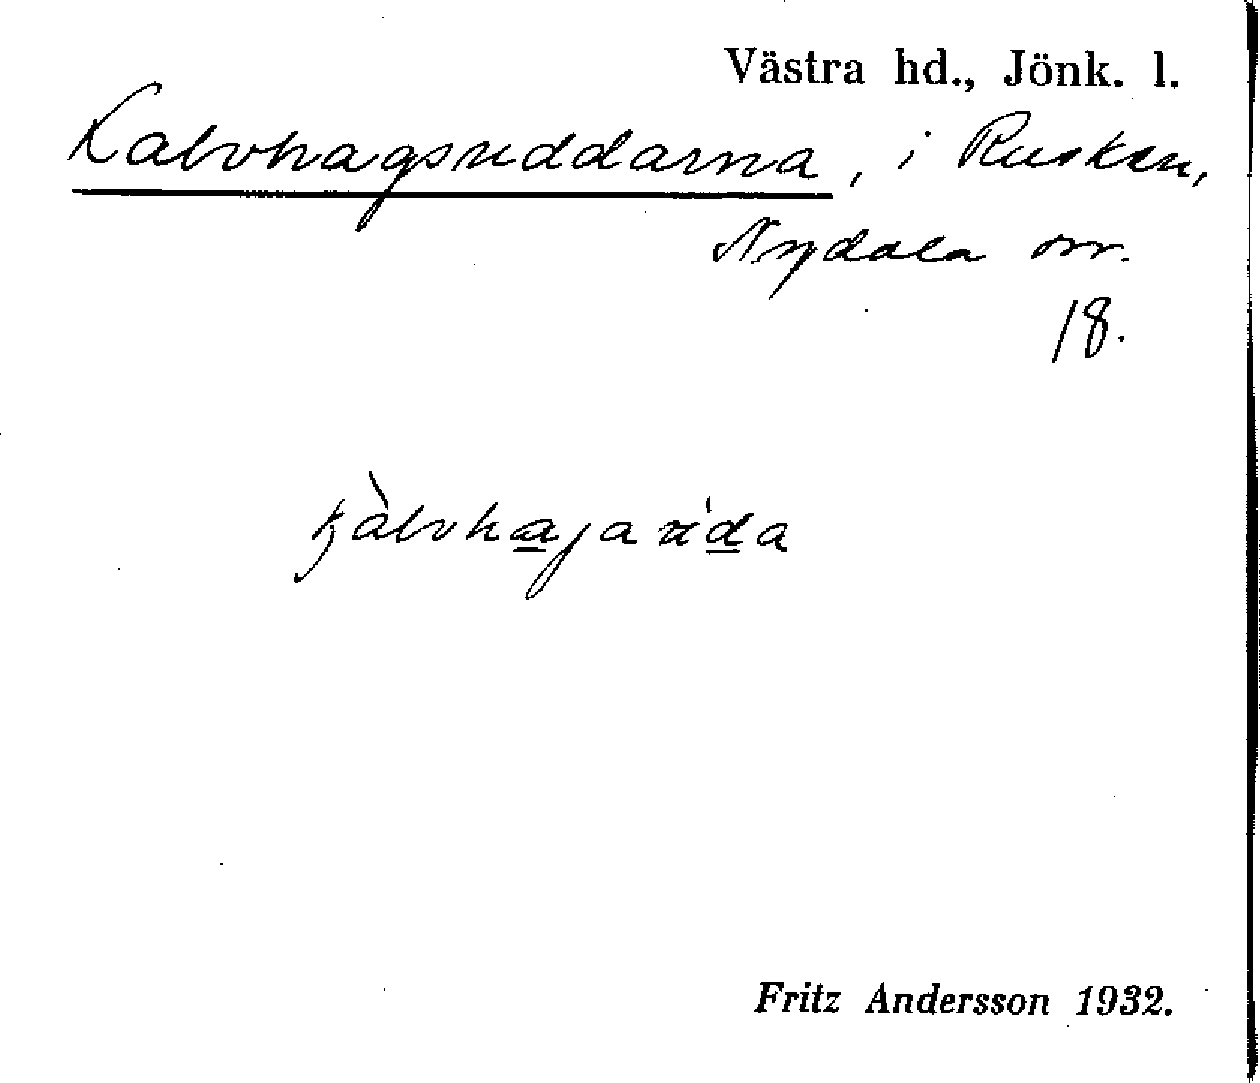 Västra hd., Jönk. l.
Kalvhagsuddarna, i Rusken,
Nydala sn.
18.
kàlvhaja u̇da
Fritz Andersson 1932.